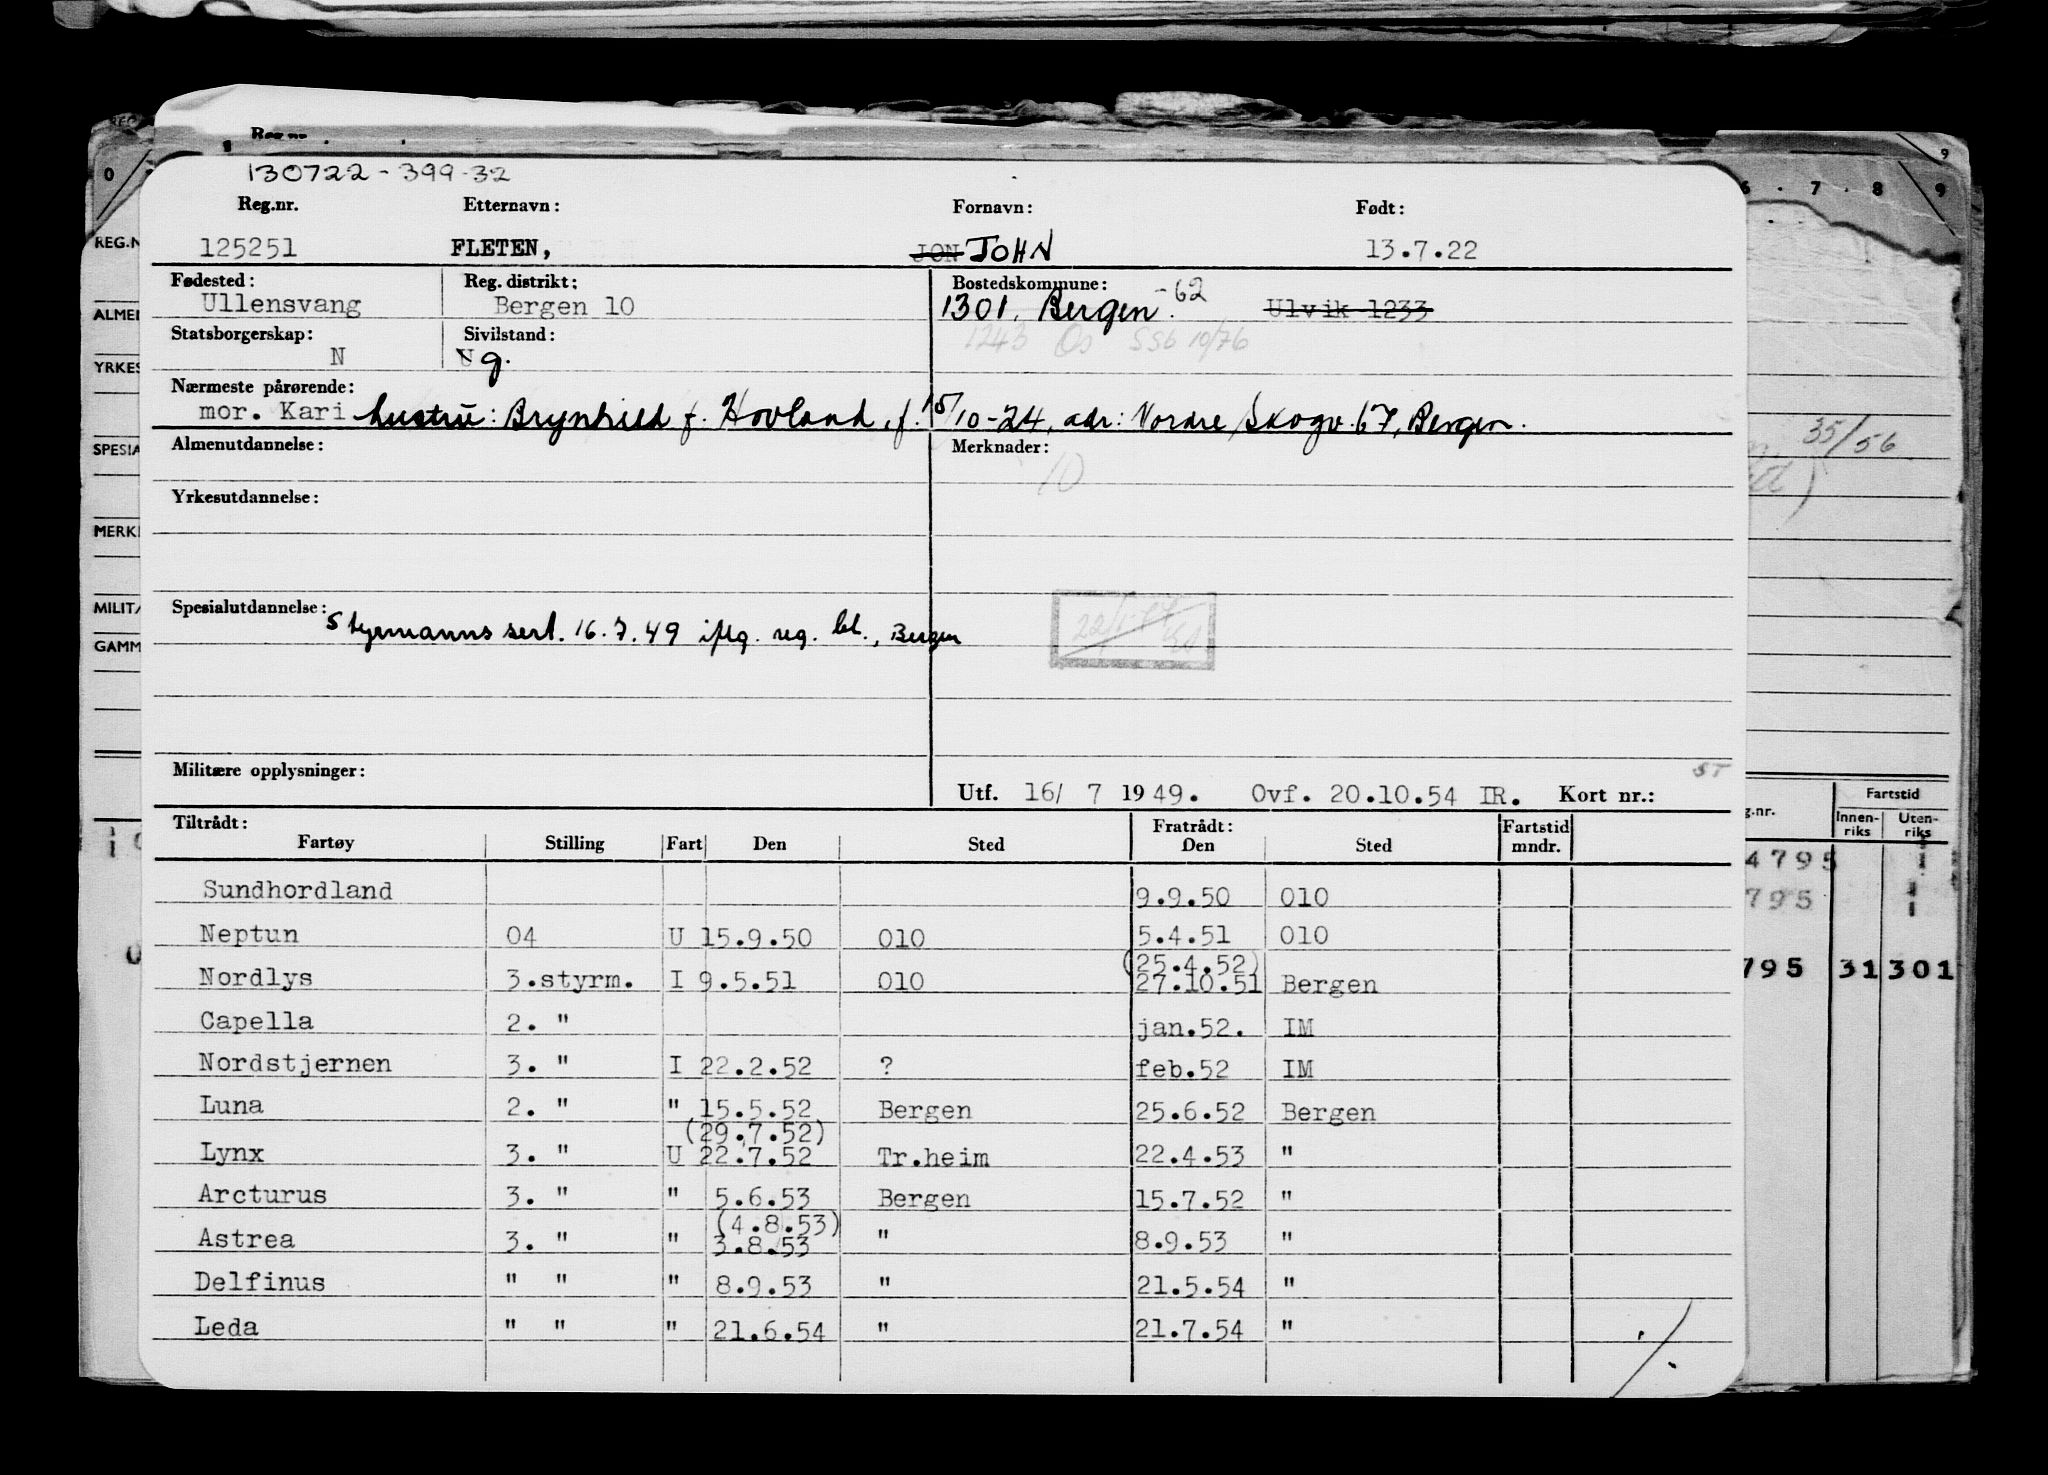 Reg.nr.
130722-399-32
Reg.nr. Etternavn: Fornavn: Født:
125251 FLETEN, JON JOHN 13.7.22
Fødested: Reg. distrikt: Bostedskommune:
Ullensvang Bergen 10 1301, Bergen. -62 Ulvik 1233
Statsborgerskap: Sivilstand: 1243 Os SSb 10/76
N U g.
Nærmeste pårørende:
mor. Kari hustru: Brynhild f. Hovland, f. 15/10-24, adr: Nordre Skogv. 67, Bergen.
Almenutdannelse: Merknader:
10
Yrkesutdannelse:
Spesialutdannelse:
Styrmanns sert. 16.7.49 iflg. reg. bl., Bergen
Militære opplysninger: ST
Utf. 16/ 7 1949. Ovf. 20.10.54 IR. Kort nr.:
Tiltrådt: Fratrådt: Fartstid
Fartøy Stilling Fart Den Sted Den Sted mndr.
Sundhordland 9.9.50 010
Neptun 04 U 15.9.50 010 5.4.51 010
(25.4.52)
Nordlys 3.styrm. I 9.5.51 010 27.10.51 Bergen
Capella 2. " jan.52. IM
Nordstjernen 3. " I 22.2.52 ? feb.52 IM
Luna 2. " " 15.5.52 Bergen 25.6.52 Bergen
(29.7.52)
Lynx 3. " U 22.7.52 Tr.heim 22.4.53 "
Arcturus 3. " " 5.6.53 Bergen 15.7.52 "
(4.8.53)
Astrea 3. " " 3.8.53 " 8.9.53 "
Delfinus " " " 8.9.53 " 21.5.54 "
Leda " " " 21.6.54 " 21.7.54 "
0
REG.N
ALMEN
YRKES
SPESIA
MERK
MILITÆ
GAMM
9
6 . 7 . 8 9
35/56
g.nr. Fartstid
Innen-riks Uten-riks
4795
795
795 31 301